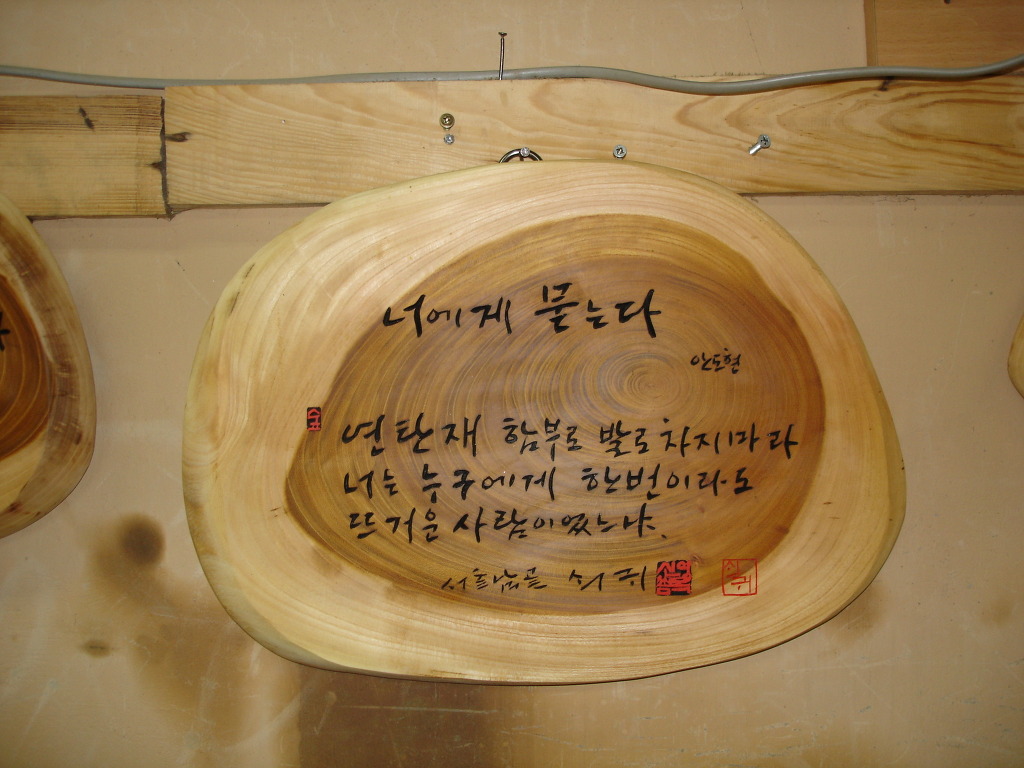 너에게 묻는다
안도현
연탄재 함부로 발로차지마라
너는 누구에게 한번이라도
뜨거운 사람이었느냐.
쇠귀
쇠귀